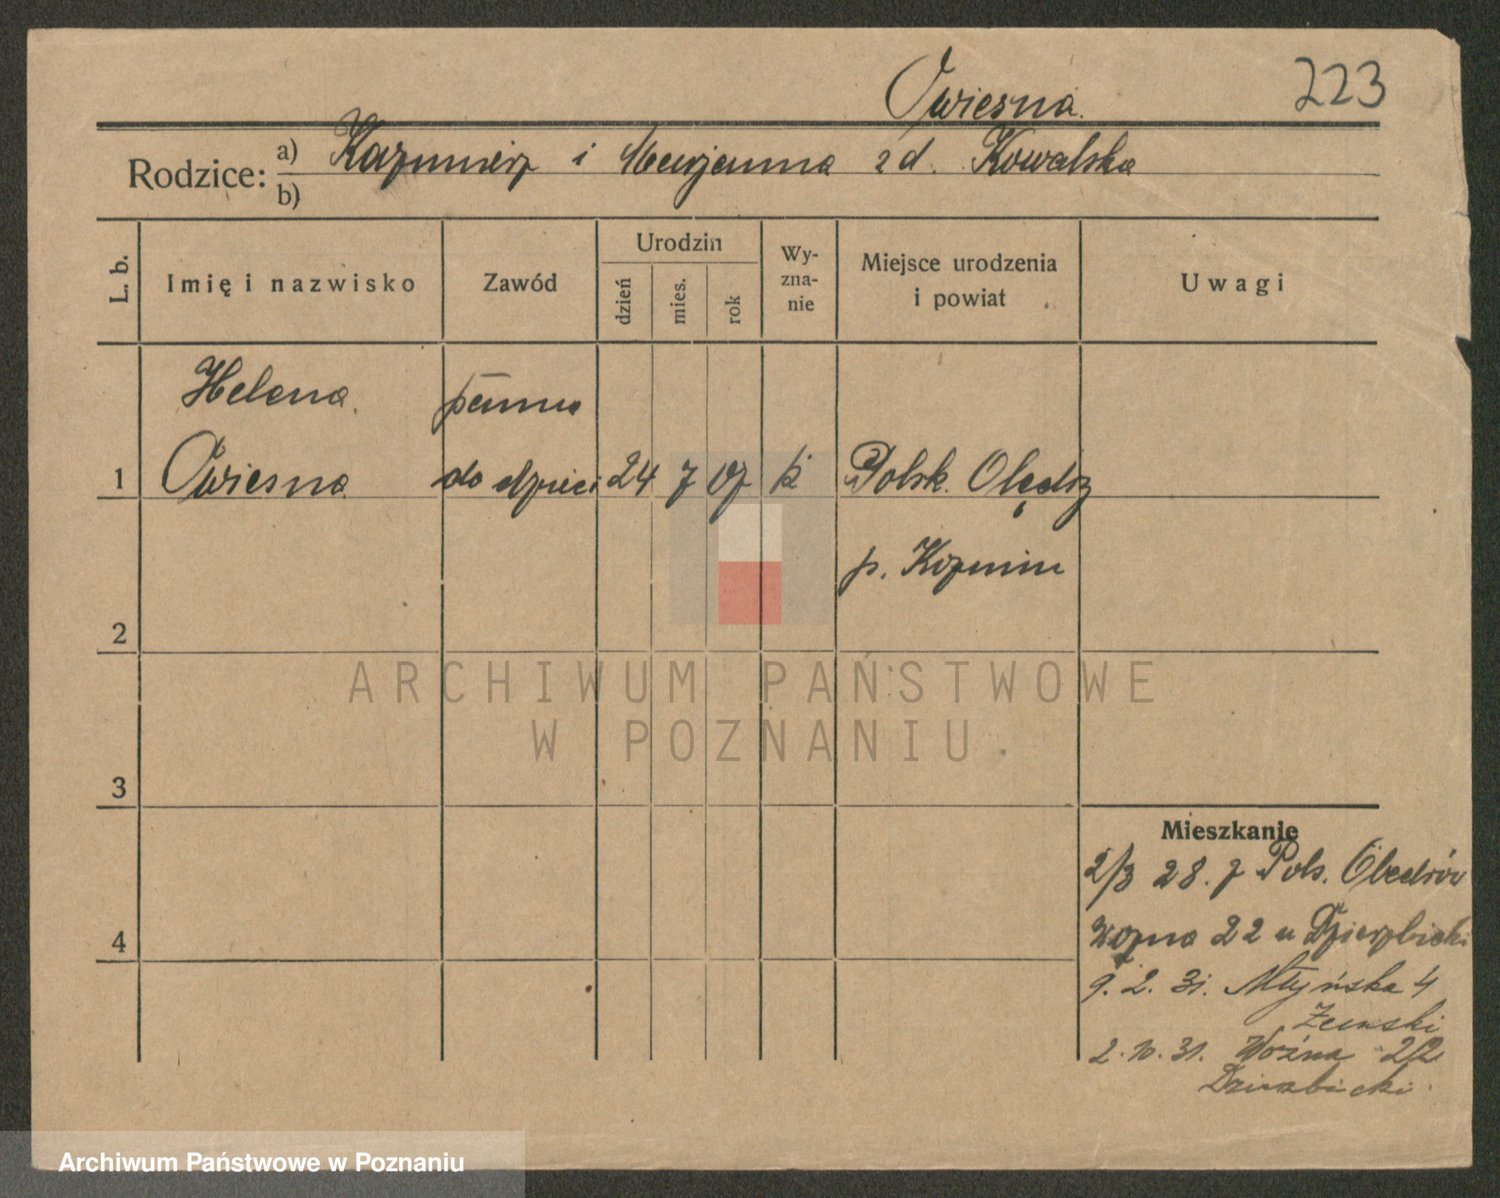 Owiesna.
223
Rodzice: a) Kazimierz i Marjanna z d. Kowalska
b)
L. b.
Imię i nazwisko
Zawód
Urodzin
dzień
mies.
rok
Wy-
zna-
nie
Miejsce urodzenia
i powiat
Uwagi
Helena
panna
1 Owiesna do dzieci 24 7 07 k Polsk. Olędry
p. Kozmin
2
ARCHIWUM PAŃSTWOWE
W POZNANIU
3
Mieszkanie
2/3 28. z Pols. Olędrów
4
Wozna 22 u Dzierzbicki
9. 2. 31. Młyńska 4
2. 10. 31. Woźna 22
Dzierzbicki
Archiwum Państwowe w Poznaniu